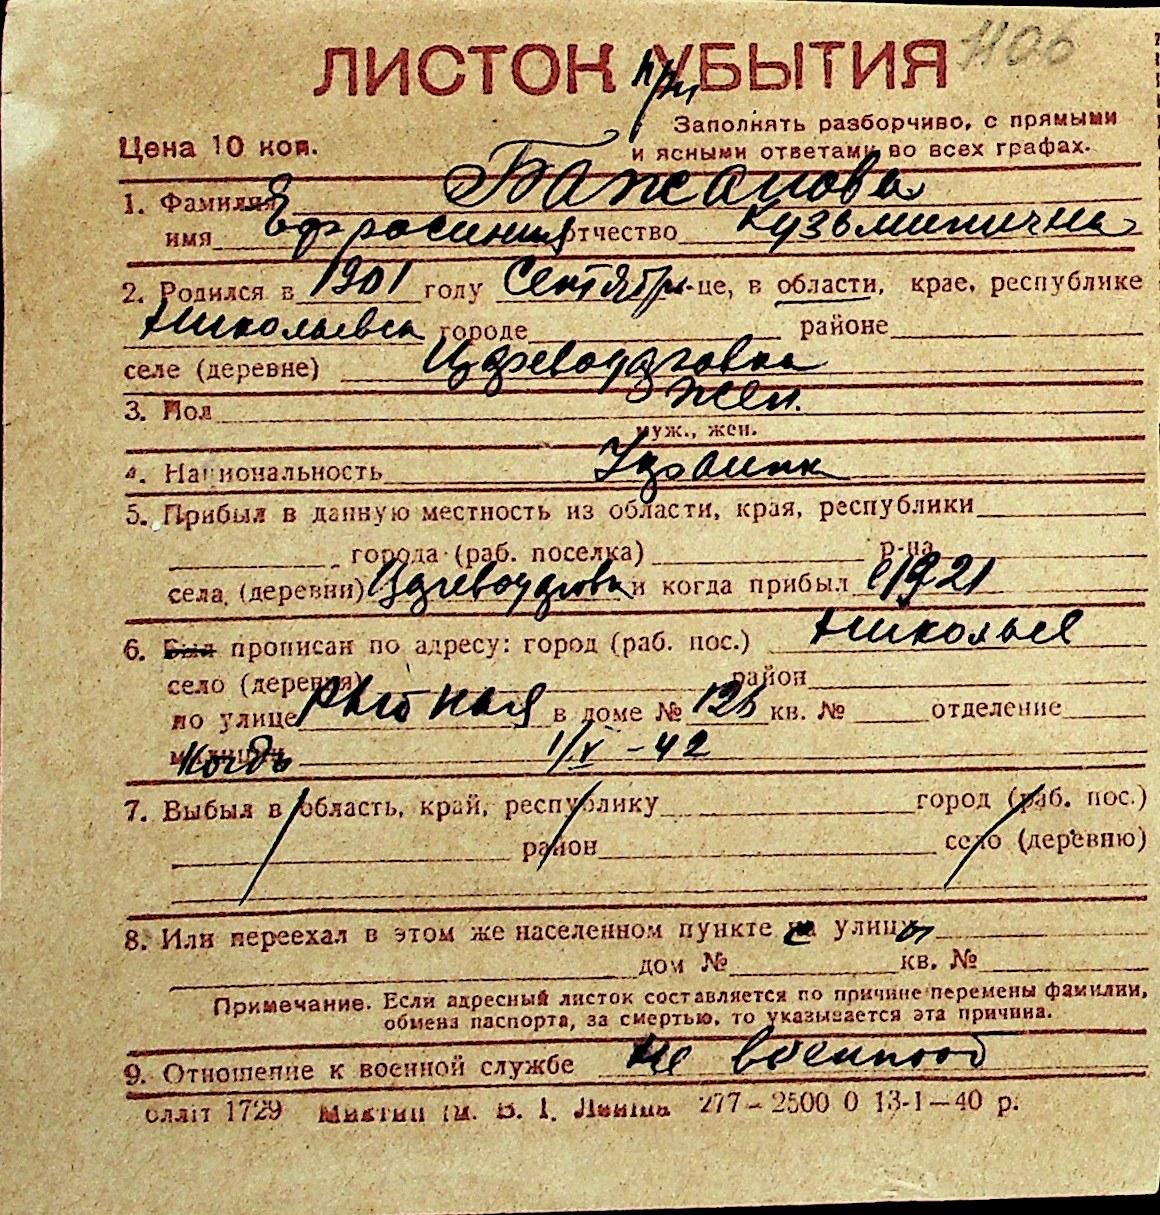 1106
ЛИСТОК при УБЫТИЯ
Заполнять разборчиво, с прямыми
Цена 10 коп. и ясными ответами во всех графах.
1. Фамилия Бажанова
имя Ефросиния отчество Кузьминична
2. Родился в 1901 году Сентябрь-це, в области, крае, республике
Николаевск городе районе
селе (деревне)
3. Пол жен.
муж., жен.
4. Национальность
5. Прибыл в данную местность из области, края, республики
города (раб. поселка) р-на
села (деревни) и когда прибыл с 1921
6. Был прописан по адресу: город (раб. пос.) Николаев
село (деревня) район
по улице Рыбная в доме № 126 кв. № отделение
милиции Когда 1/V-42
7. Выбыл в область, край, республику город (раб. пос.)
район село (деревню)
8. Или переехал в этом же населенном пункте с улицы
дом № кв. №
Примечание. Если адресный листок составляется по причине перемены фамилии,
обмена паспорта, за смертью, то указывается эта причина.
9. Отношение к военной службе не военнооб
облліт 1729 ім. В. І. Леніна 277—2500 0 13-I—40 р.